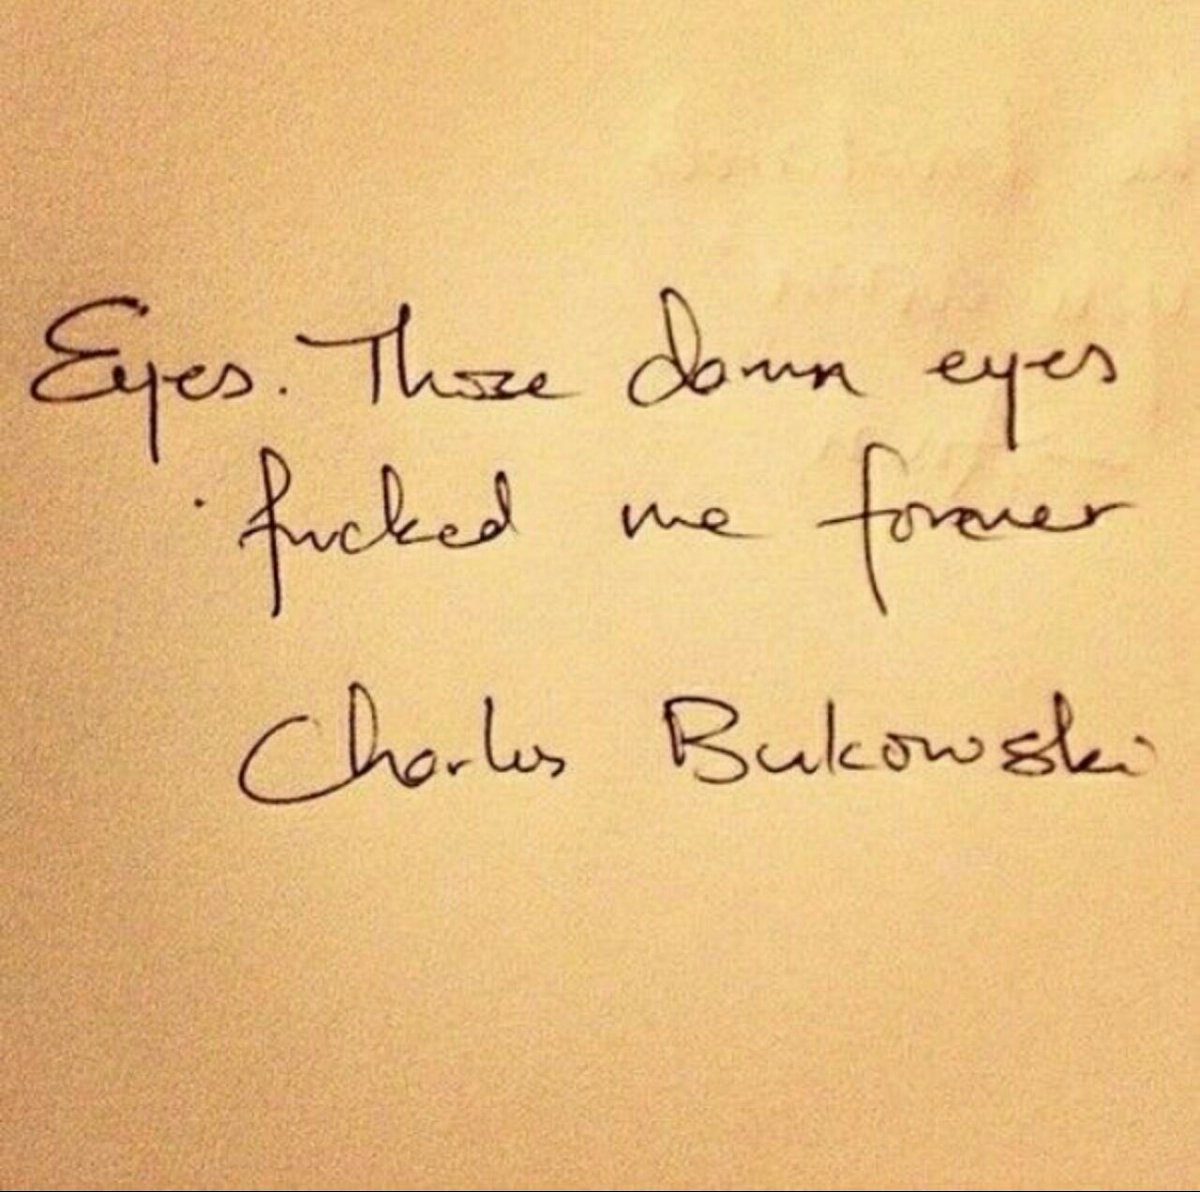 Eyes. Those damn eyes
fucked me forever
Charles Bukowski